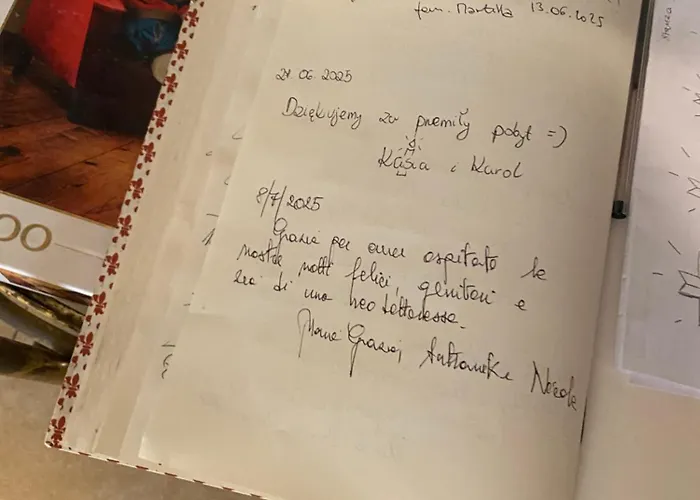 fam. Martilla 13.06.2025
21.06 2025
Dziękujemy za przemiły pobyt =)
Kasia i Karol
8/7/2025
Grazie per averci ospitato le
nostre notti felici, genitori e
zia di una neo dottoressa.
Maria Grazia, Nicola
00